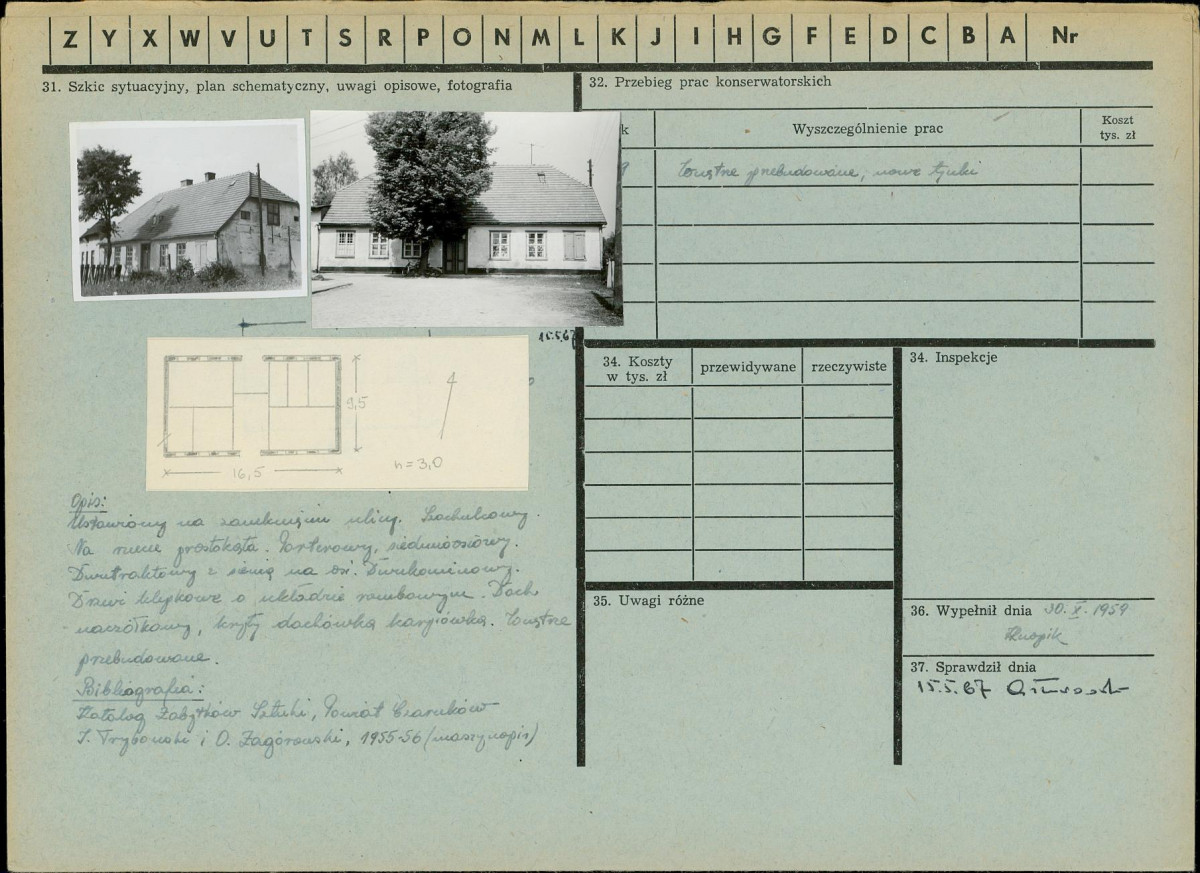 Z Y X W V U T S R P O N M L K J I H G F E D C B A Nr
31. Szkic sytuacyjny, plan schematyczny, uwagi opisowe, fotografia
32. Przebieg prac konserwatorskich
k
Wyszczególnienie prac
Koszt
tys. zł
Wnętrze przebudowane, nowe tynki
15.5.67
9,5
16,5
h = 3,0
Opis:
Ustawiony na zamknięciu ulicy. Szachulcowy.
Na rzucie prostokąta. Parterowy, siedmioosiowy.
Dwutraktowy z sienią na osi. Dwukominowy.
Drzwi klepkowe o układzie rombowym. Dach
naczółkowy, kryty dachówką karpiówką. Wnętrze
przebudowane.
Bibliografia:
Katalog Zabytków Sztuki, Powiat Czarnków
T. Trybowski i O. Zagórowski, 1955-56 (maszynopis)
34. Koszty
w tys. zł
przewidywane
rzeczywiste
34. Inspekcje
35. Uwagi różne
36. Wypełnił dnia 30.X.1959
37. Sprawdził dnia
15.5.67